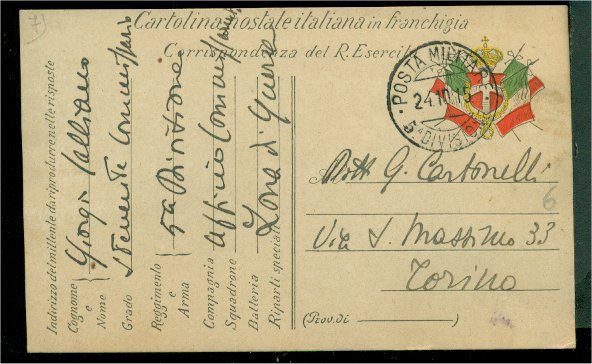 7
Cartolina postale italiana in franchigia
Corrispondenza del R. Esercito
POSTA MILITARE
24.10.15
5ª DIVISIONE
Indirizzo del mittente da riprodurre nelle risposte
Cognome e Nome
Giorgio Galliano
Grado
Tenente Commissario
Reggimento e Arma
5ª Divisione
Compagnia
Squadrone
Ufficio Commissariato
Batteria
Riparti speciali
Zona di Guerra
Dott G. Cartonelli
Via S. Massimo 33
Torino
6
(Prov. di )